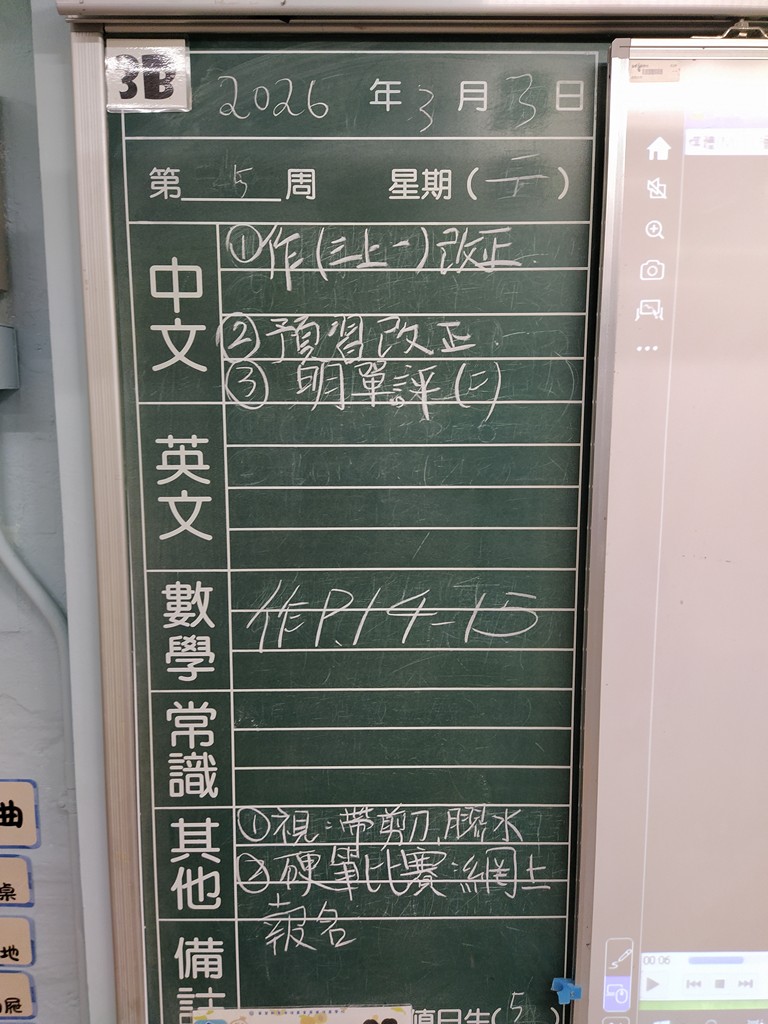 3B
2026 年 3 月 3 日
第 5 周 星期(二)
中文
①作(三上一)改正
②預習改正
③ 明單評(二)
英文
數學
作P.14-15
常識
其他
①視:帶剪刀,膠水
②硬筆比賽:網上
報名
備註
值日生(5)
00:06
曲
桌
地